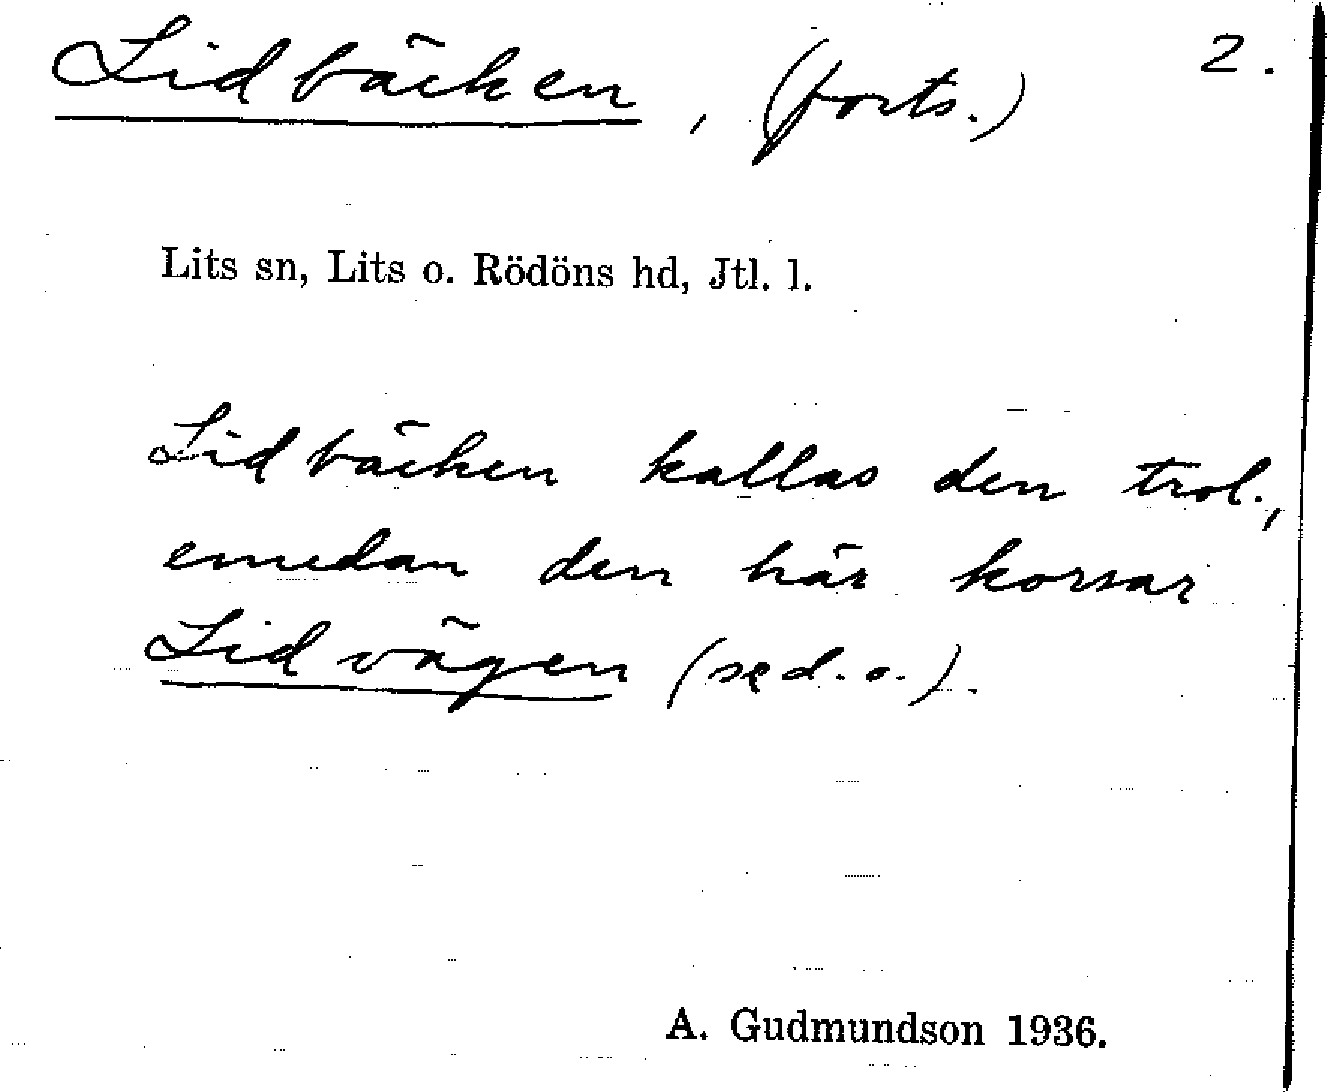 Lidbäcken, (forts.) 2.
Lits sn, Lits o. Rödöns hd, Jtl. l.
Lidbäcken kallas den trol.,
emedan den här korsar
Lidvägen (se d. o.).
A. Gudmundson 1936.